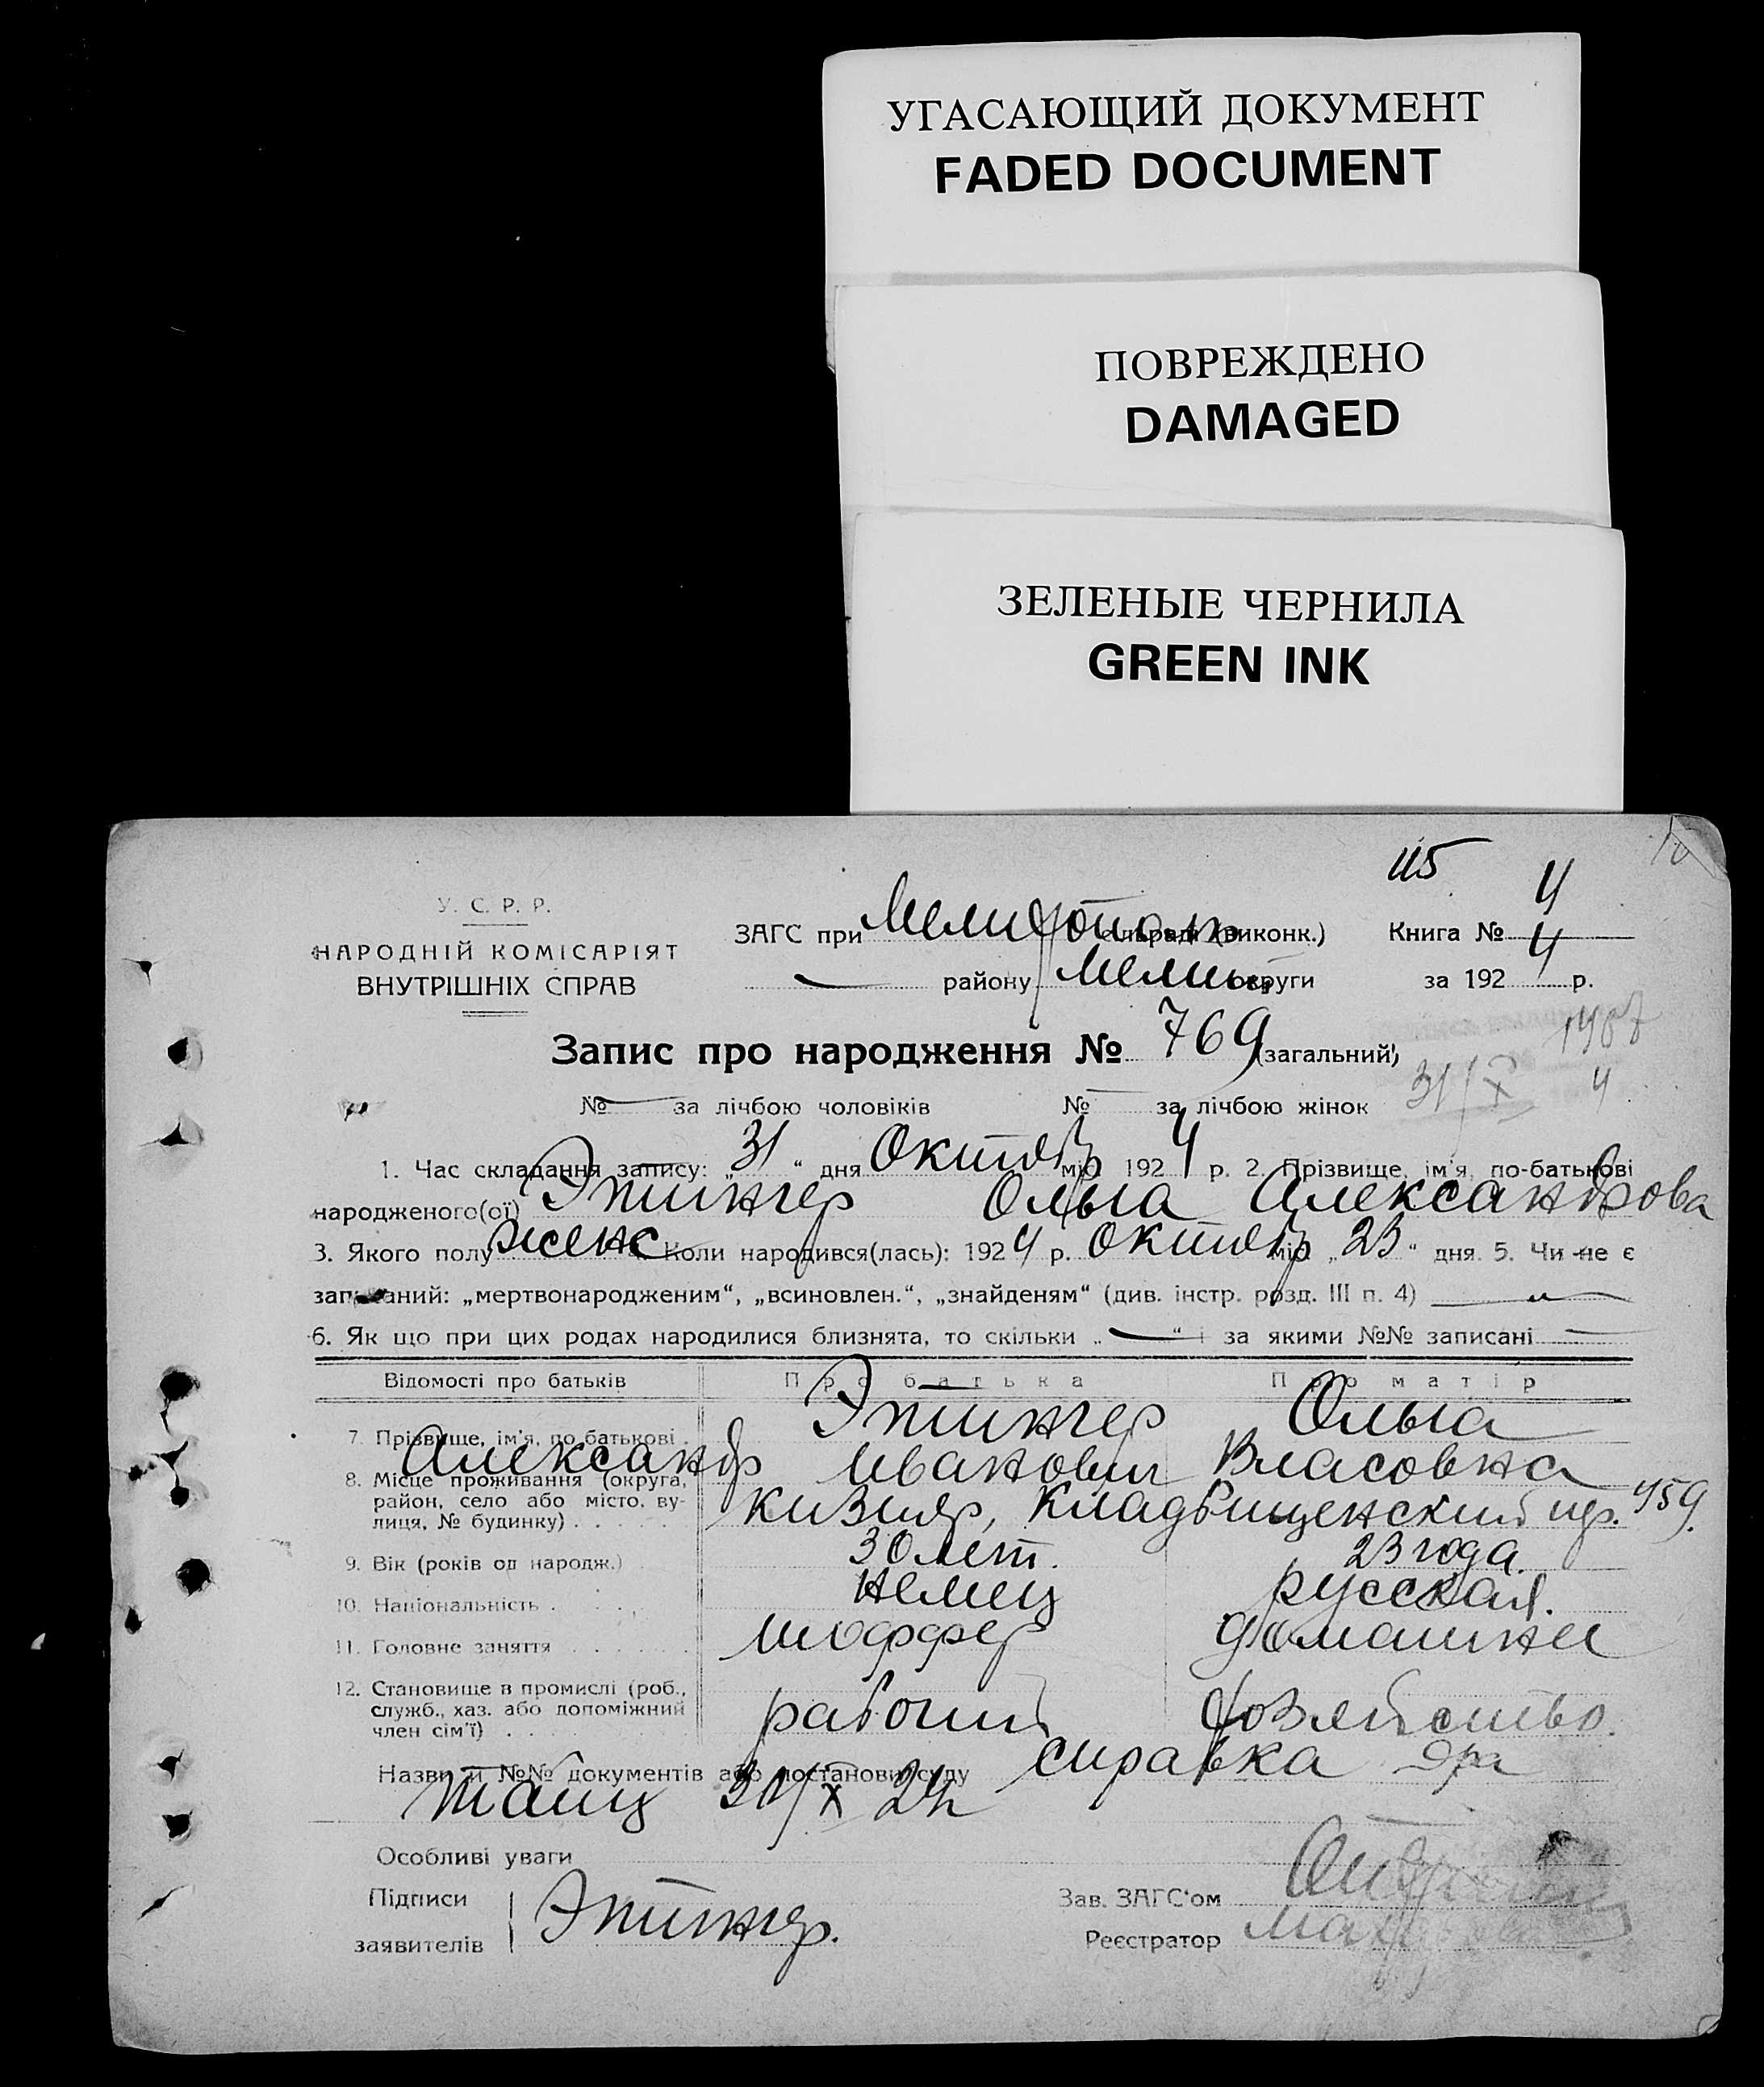 УГАСАЮЩИЙ ДОКУМЕНТ
FADED DOCUMENT
ПОВРЕЖДЕНО
DAMAGED
ЗЕЛЕНЫЕ ЧЕРНИЛА
GREEN INK
115
У. С. Р. Р.
НАРОДНІЙ КОМІСАРІЯТ
ВНУТРІШНІХ СПРАВ
ЗАГС при Мелитополь сільраді (виконк.) Книга № 4 4
району Мелит округи за 1924 р.
Запис про народження № 769 (загальний)
№ за лічбою чоловіків № за лічбою жінок 31/X 4
1. Час складання запису: „31“ дня Октябр міс. 1924 р. 2. Прізвище, ім'я, по-батькові
народженого(ої) Эпингер Ольга Александрова
3. Якого полу женс 4. Коли народився(лась): 1924 р. Октябр міс. „23“ дня. 5. Чи не є
записаний: „мертвонародженим“, „всиновлен.“, „знайденям“ (див. інстр. розд. III п. 4)
6. Як що при цих родах народилися близнята, то скільки „ “ і за якими №№ записані
Відомості про батьків Про батька Про матір
7. Прізвище, ім'я, по батькові Эпингер Ольга
Александр Иванович Власовна
8. Місце проживання (округа,
район, село або місто, ву-
лиця, № будинку) Кизияр, Кладбищенский пер. 459.
9. Вік (років од народж.) 30 лет. 23 года.
10. Національність немец русская.
11. Головне заняття шоффер домашнее
12. Становище в промислі (роб.,
служб., хаз. або допоміжний
член сім'ї) рабочий хозяйство.
Назви й №№ документів або постанови суду справка
31/X 24
Особливі уваги
Підписи
заявителів Эпингер.
Зав. ЗАГС'ом
Реєстратор